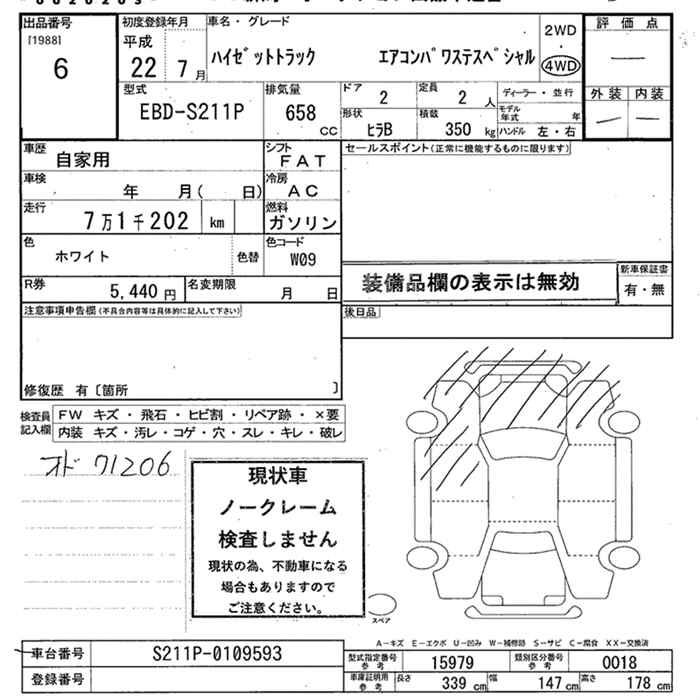 出品番号
[1988]
6
初度登録年月
平成
22 7月
車名・グレード
ハイゼットトラック エアコンパワステスペシャル
2WD
・
4WD
評価点
—
外装 内装
— —
型式
EBD-S211P
排気量
658
CC
ドア
2
定員
2人
形状
ヒラB
積載
350kg
ディーラー・並行
モデル年式 年
ハンドル 左・右
車歴
自家用
シフト
FAT
セールスポイント(正常に機能するものに限ります)
車検
年 月( 日)
冷房
AC
走行
7万1千202 km
燃料
ガソリン
色
ホワイト
色替
色コード
W09
装備品欄の表示は無効
新車保証書
有・無
R券
5,440円
名変期限
月 日
後日品
注意事項申告欄(不具合内容等は具体的に記入して下さい)
修復歴 有〔箇所 〕
検査員記入欄
FW キズ・飛石・ヒビ割・リペア跡・×要
内装 キズ・汚レ・コゲ・穴・スレ・キレ・破レ
オド 71206
現状車
ノークレーム
検査しません
現状の為、不動車になる
場合もありますので
ご注意ください。
スペア
A-キズ E-エクボ U-凹み W-補修跡 S-サビ C-腐食 XX-交換済
車台番号
S211P-0109593
型式指定番号
参考
15979
類別区分番号
参考
0018
登録番号
車庫証明用
参考
長さ
339 cm
幅
147 cm
高さ
178 cm